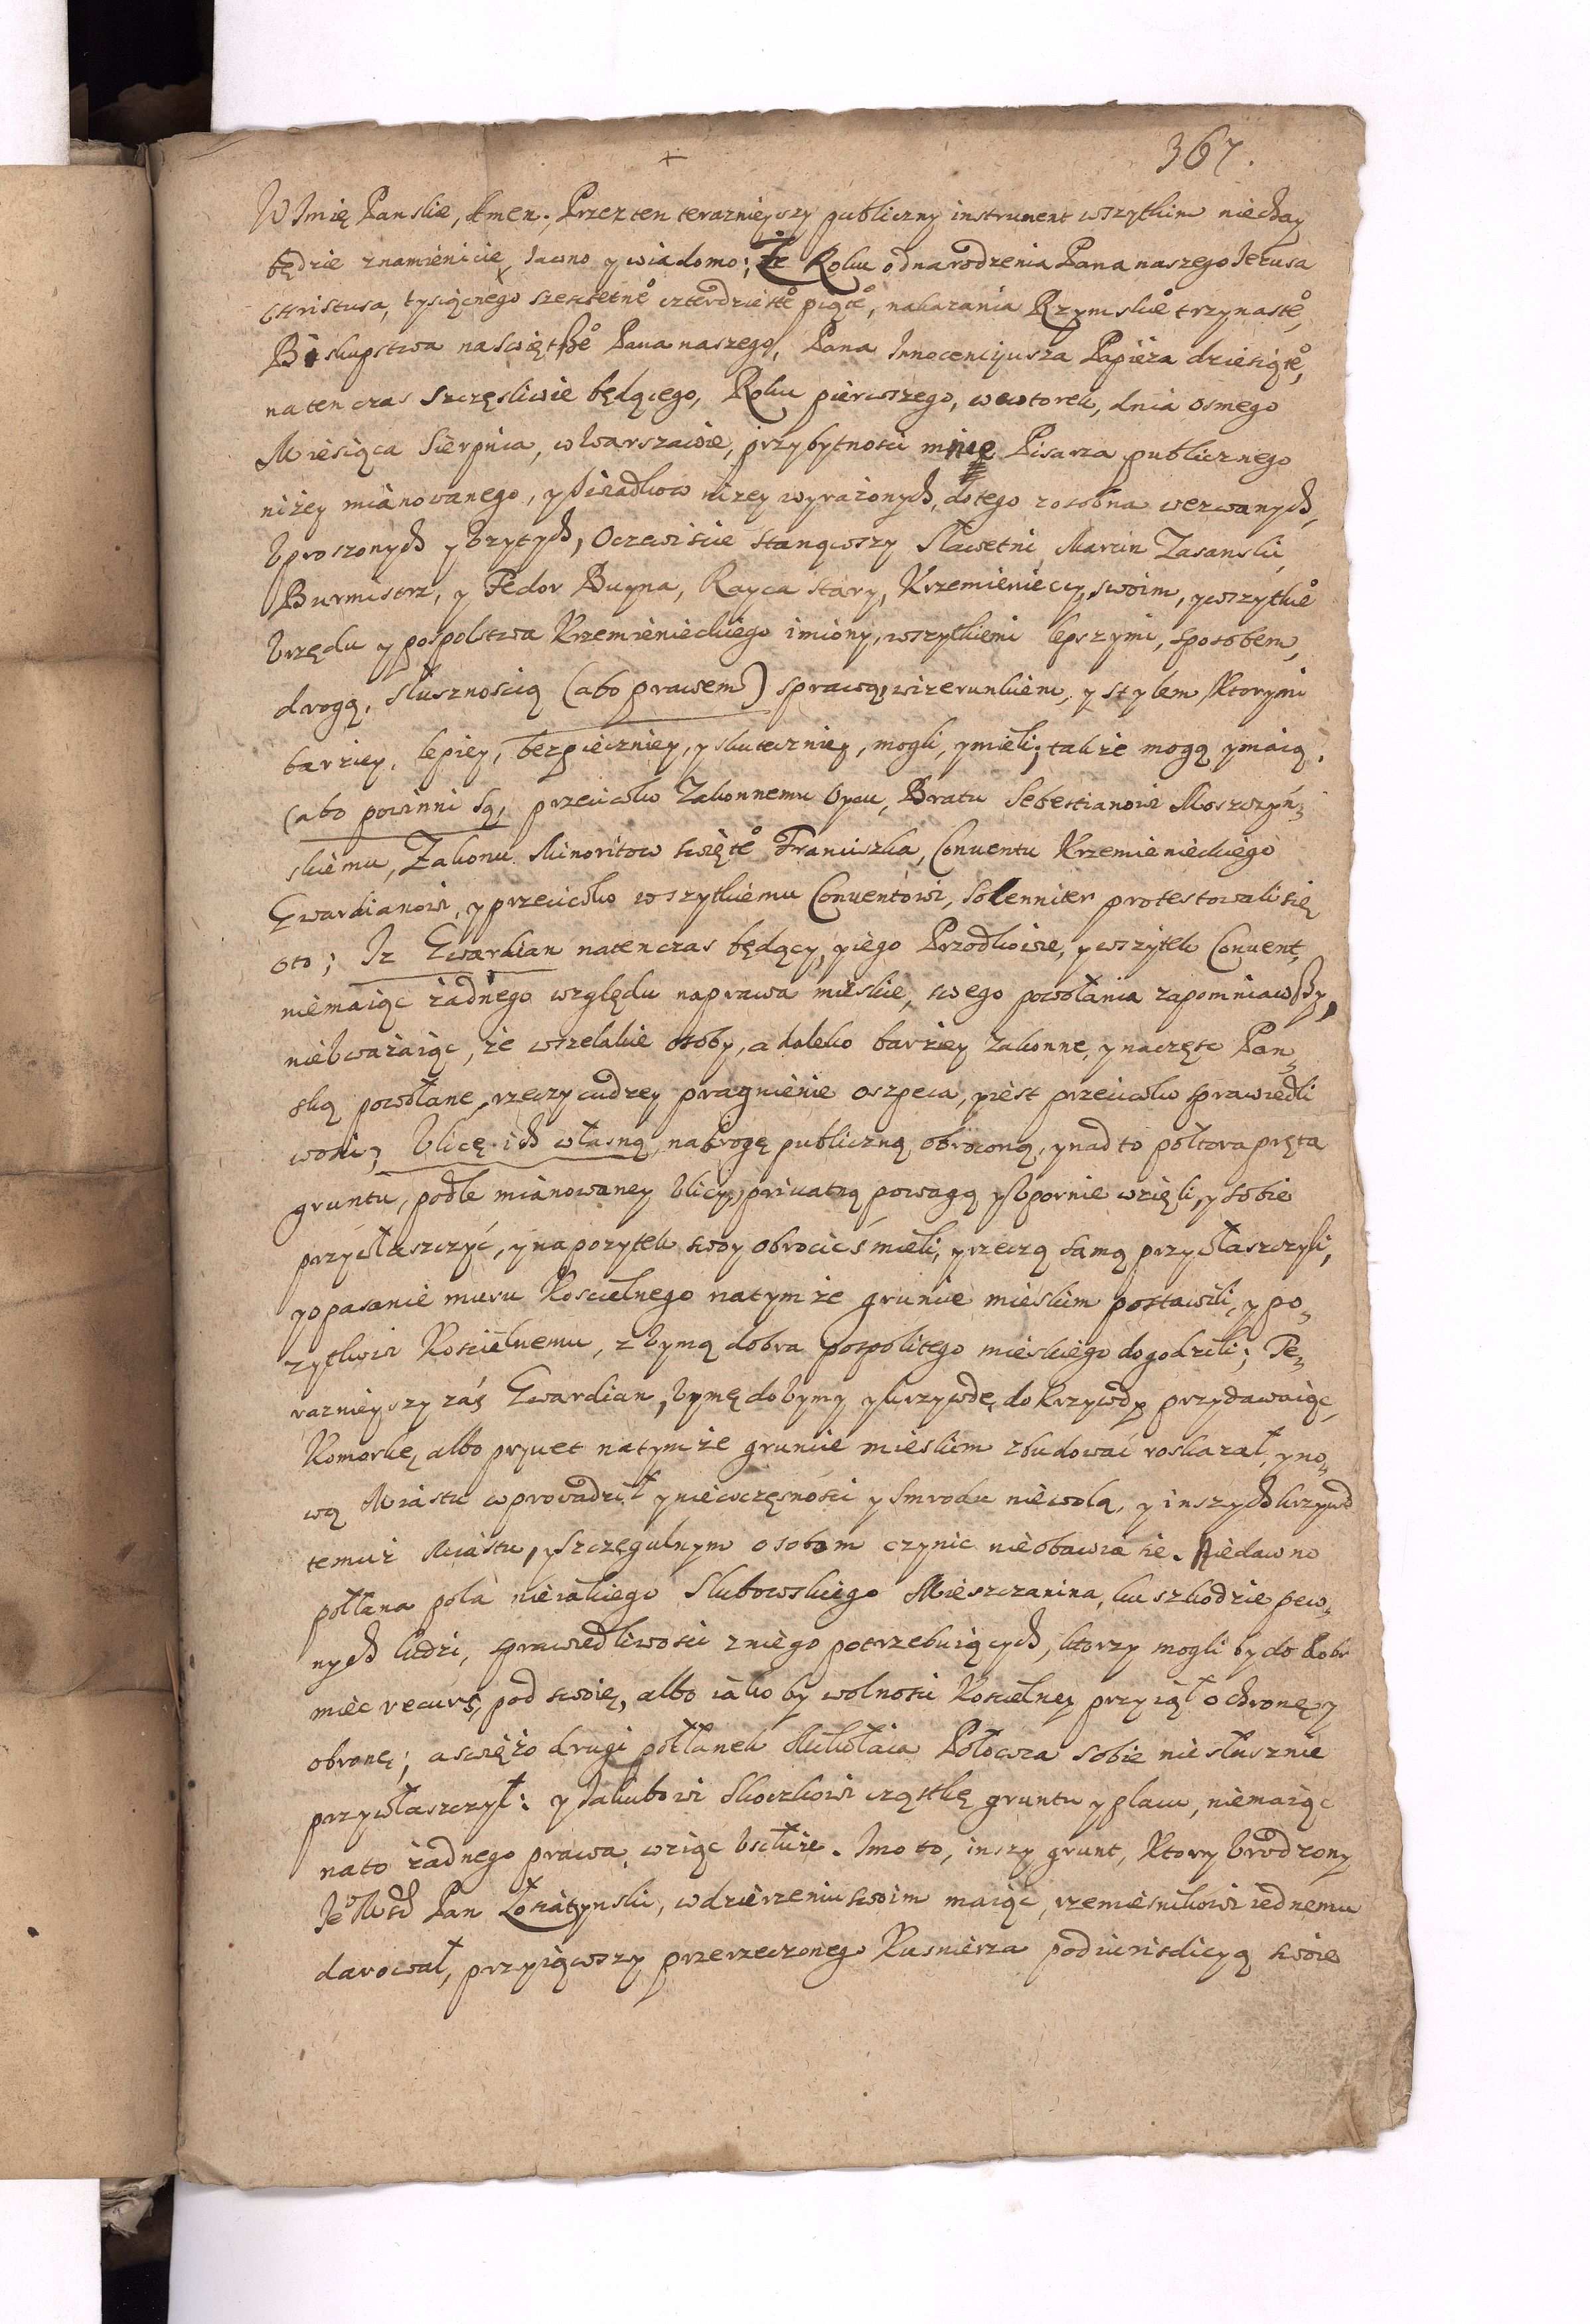 367.
W Imię Panskie, Amen. Przez ten terazniejszy publiczny instrument wszytkim niechay
będzie znamienicie, Iawno y wiadomo; Że Roku od narodzenia Pana naszego Jezusa
Christusa, tysiącnego szescsetne° czterdzieste° piąte°, nakazania Rzymskie° trzynaste°,
Biskupstwa naświętsze° Pana naszego, Pana Innocencijusza Papieża dziesiąte°,
naten czas szczęsliwie będącego, Roku pierwszego, w wtorek, dnia osmego
Miesiąca Sierpnia, w Warszawie, przy bytnosci mnie Pisarza publicznego
niżey mianowanego, y swiadkow niżey wyrażonych, do tego zosobna wezwanych,
Vproszonych y Vzytych, Oczewiscie stanąwszy Sławetni, Marcin Zasanski,
Burmistrz, y Fedor Buyna, Rayca stary, Krzemienieccy, swoim, y wszytkie°
Vrzędu y pospolstwa Krzemienieckiego imiony, wszytkiemi lepszymi, sposobem,
drogą, słusznoscią (abo prawem) sprawą, wizerunkiem, y stylem, Ktorymi
barziey, lepiey, bezpieczniey, y skuteczniey, mogli, y mieli; także mogą y maią,
(abo powinni są, przeciwko Zakonnemu Oycu, Bratu Sebestianowi Moszczyń„
skiemu, Zakonu Minoritow święte° Franciszka, Conventu Krzemienieckiego
Gwardianowi, y przeciwko wszytkiemu Conventowi, solenniter protestowali się
oto; Iz Gwardian natenczas będący, y iego Przodkowie, y wszytek Convent,
niemaiąc żadnego względu na prawa mieskie, swego powołania zapomniawszy,
nie Vważaiąc, że wszelakie osoby, a daleko barziey zakonne, y naczęść Pan„
ską powołane, rzeczy cudzey pragnienie oszpeca, y iest przeciwko sprawiedli
wosci; Vlicę ich własną, na drogę publiczną obroconą, y nad to połtora pręta
gruntu, podle mianowaney Vlicy, privatną powagą y Vpornie wzięli, y sobie
przywłaszczyć, y na pozytek swoy obrocić śmieli, y rzeczą samą przywłaszczyli,
y opasanie muru Koscielnego na tymże gruncie mieskim postawili, y po„
zytkowi Koscielnemu, z Vymą dobra pospolitego mieskiego dogodzili; Te„
raznieyszy zaś Gwardian, Vymę do Vymy y krzywdę, do krzywdy przydawaiąc,
Komorkę, albo pryuet na tymże gruncie mieskim zbudować roskazał, y no„
wą Miastu wprowadził y niewczęsnosci y smrodu niewolą, y inszych krzywd
temuż Miastu, y szczegulnym osobom czynic nieobawia sie. Niedawno
połłana pola nieiakiego Slubowskiego Mieszczanina, ku szkodzie pew„
nych ludzi, sprawiedliwosci z niego potrzebuiących, ktorzy mogliby do dobr
mieć recurs, pod swoię, albo iakoby wolnosci Koscielney przyiął ochronę y
obronę; a swieżo drugi połłanek Mikołaia Połowca sobie niesłusznie
przywłaszczył: y Iakubowi Skoczkowi cząstkę gruntu y placu, niemaiąc
nato żadnego prawa, wziąc Vsiłuie. Imo to, inszy grunt, Ktory Vrodzony
Je° Mść Pan Łosiatynski, w dzierzeniu swoim maiąc, rzemiesnikowi iednemu
darował, przyiąwszy przerzeczonego Kusnierza pod iurisdicyą swoię